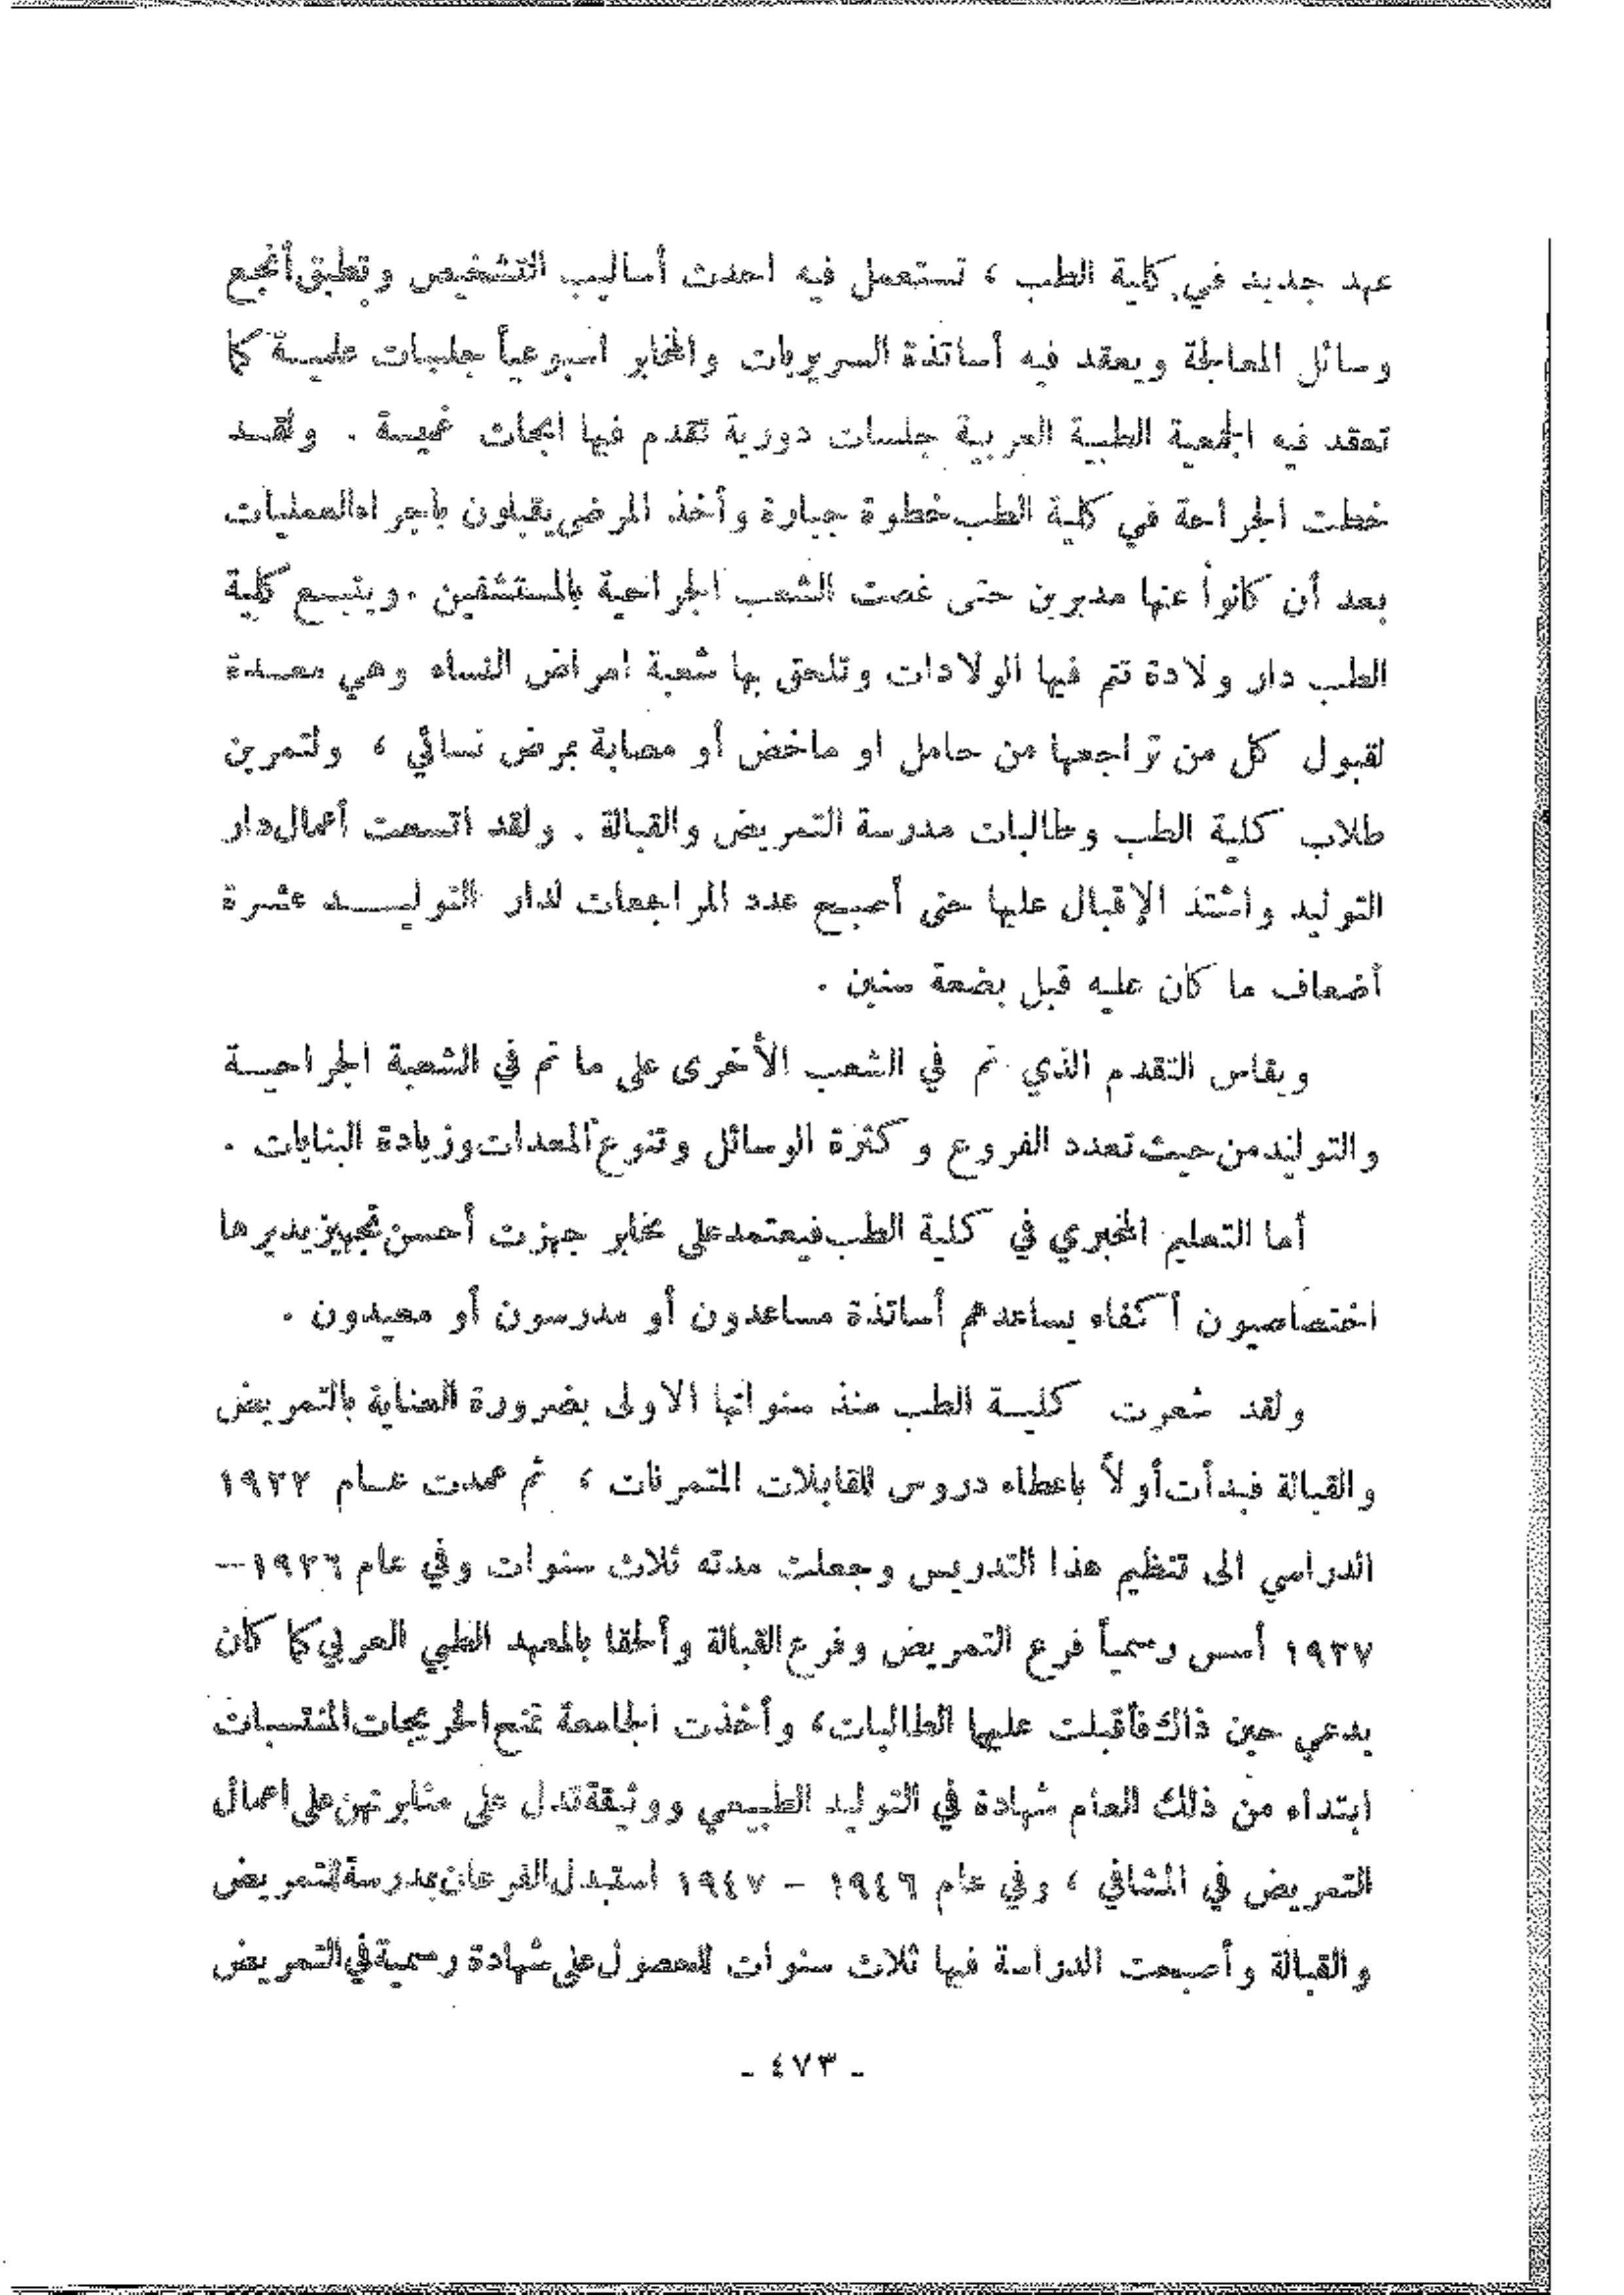 عهد جديد في كلية الطب ، تستعمل فيه احدث أساليب التشخيص وتطبق أنجع
وسائل المعالجة ويعقد فيه أساتذة السريريات والمخابر اسبوعياً جلسات علمية كما
تعقد فيه الجمعية الطبية العربية جلسات دورية تقدم فيها ابحاث قيمة . ولقد
خطت الجراحة في كلية الطب خطوة جبارة وأخذ المرضى يقبلون بإجراء العمليات
بعد أن كانوا عنها مدبرين حتى غصت الشعب الجراحية بالمستشفين . ويتبع كلية
الطب دار ولادة تتم فيها الولادات وتلحق بها شعبة امراض النساء وهي معدة
لقبول كل من تراجعها من حامل او ماخض أو مصابة بمرض نسائي ، ولتمرين
طلاب كلية الطب وطالبات مدرسة التمريض والقبالة . ولقد اتسعت أعمال دار
التوليد واشتد الإقبال عليها حتى أصبح عدد المراجعات لدار التوليد عشرة
أضعاف ما كان عليه قبل بضعة سنين .
ويقاس التقدم الذي تم في الشعب الأخرى على ما تم في الشعبة الجراحية
والتوليد من حيث تعدد الفروع وكثرة الوسائل وتنوع المعدات وزيادة البنايات .
أما التعليم المخبري في كلية الطب فيعتمد على مخابر جهزت أحسن تجهيز يديرها
اختصاصيون أكفاء يساعدهم أساتذة مساعدون أو مدرسون أو معيدون .
ولقد شعرت كلية الطب منذ سنواتها الاولى بضرورة العناية بالتمريض
والقبالة فبدأت أولاً باعطاء دروس للقابلات المتمرنات ، ثم عمدت عام ١٩٢٢
الدراسي الى تنظيم هذا التدريس وجعلت مدته ثلاث سنوات وفي عام ١٩٣٦ –
١٩٣٧ أسس رسمياً فرع التمريض وفرع القبالة وألحقا بالمعهد الطبي العربي كما كان
يدعى حين ذاك فأقبلت عليها الطالبات ، وأخذت الجامعة تمنح الخريجات المنتسبات
ابتداء من ذلك العام شهادة في التوليد الطبيعي ووثيقة تدل على مثابرتهن على اعمال
التمريض في المشافي ، وفي عام ١٩٤٦ – ١٩٤٧ استبدل الفرعان بمدرسة التمريض
والقبالة وأصبحت الدراسة فيها ثلاث سنوات للحصول على شهادة رسمية في التمريض
- ٤٧٣ -